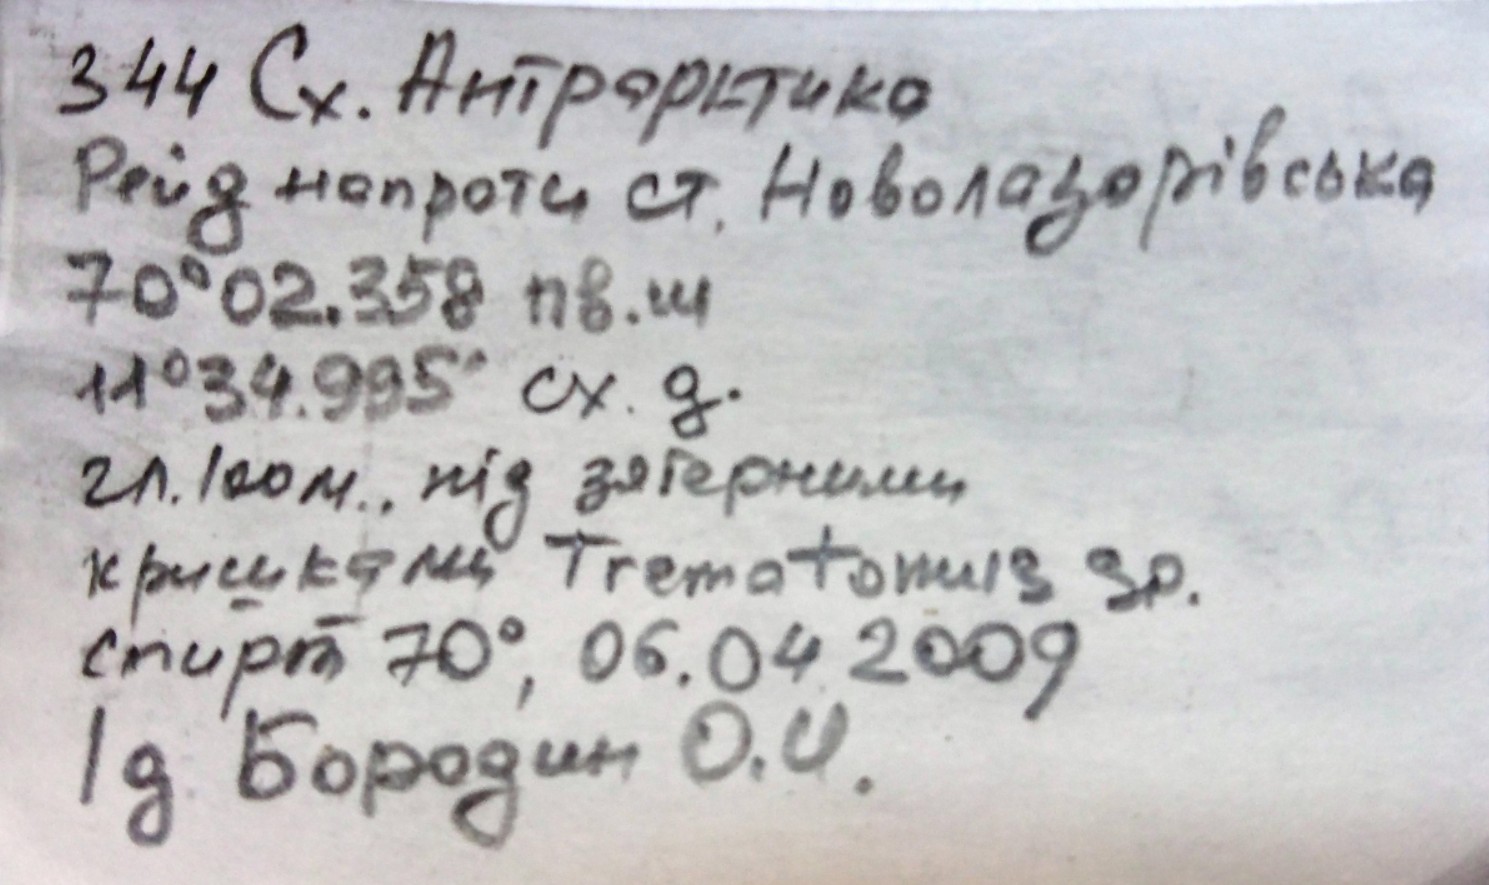 344 Сх. Антрарктика
Рейд напроти ст. Новолазарівська
70°02.358 пв.ш
11°34.995' сх. д.
гл. 100 м., під зяберними
кришками Trematomus sp.
спирт 70°, 06.04 2009
1д Бородин О.И.